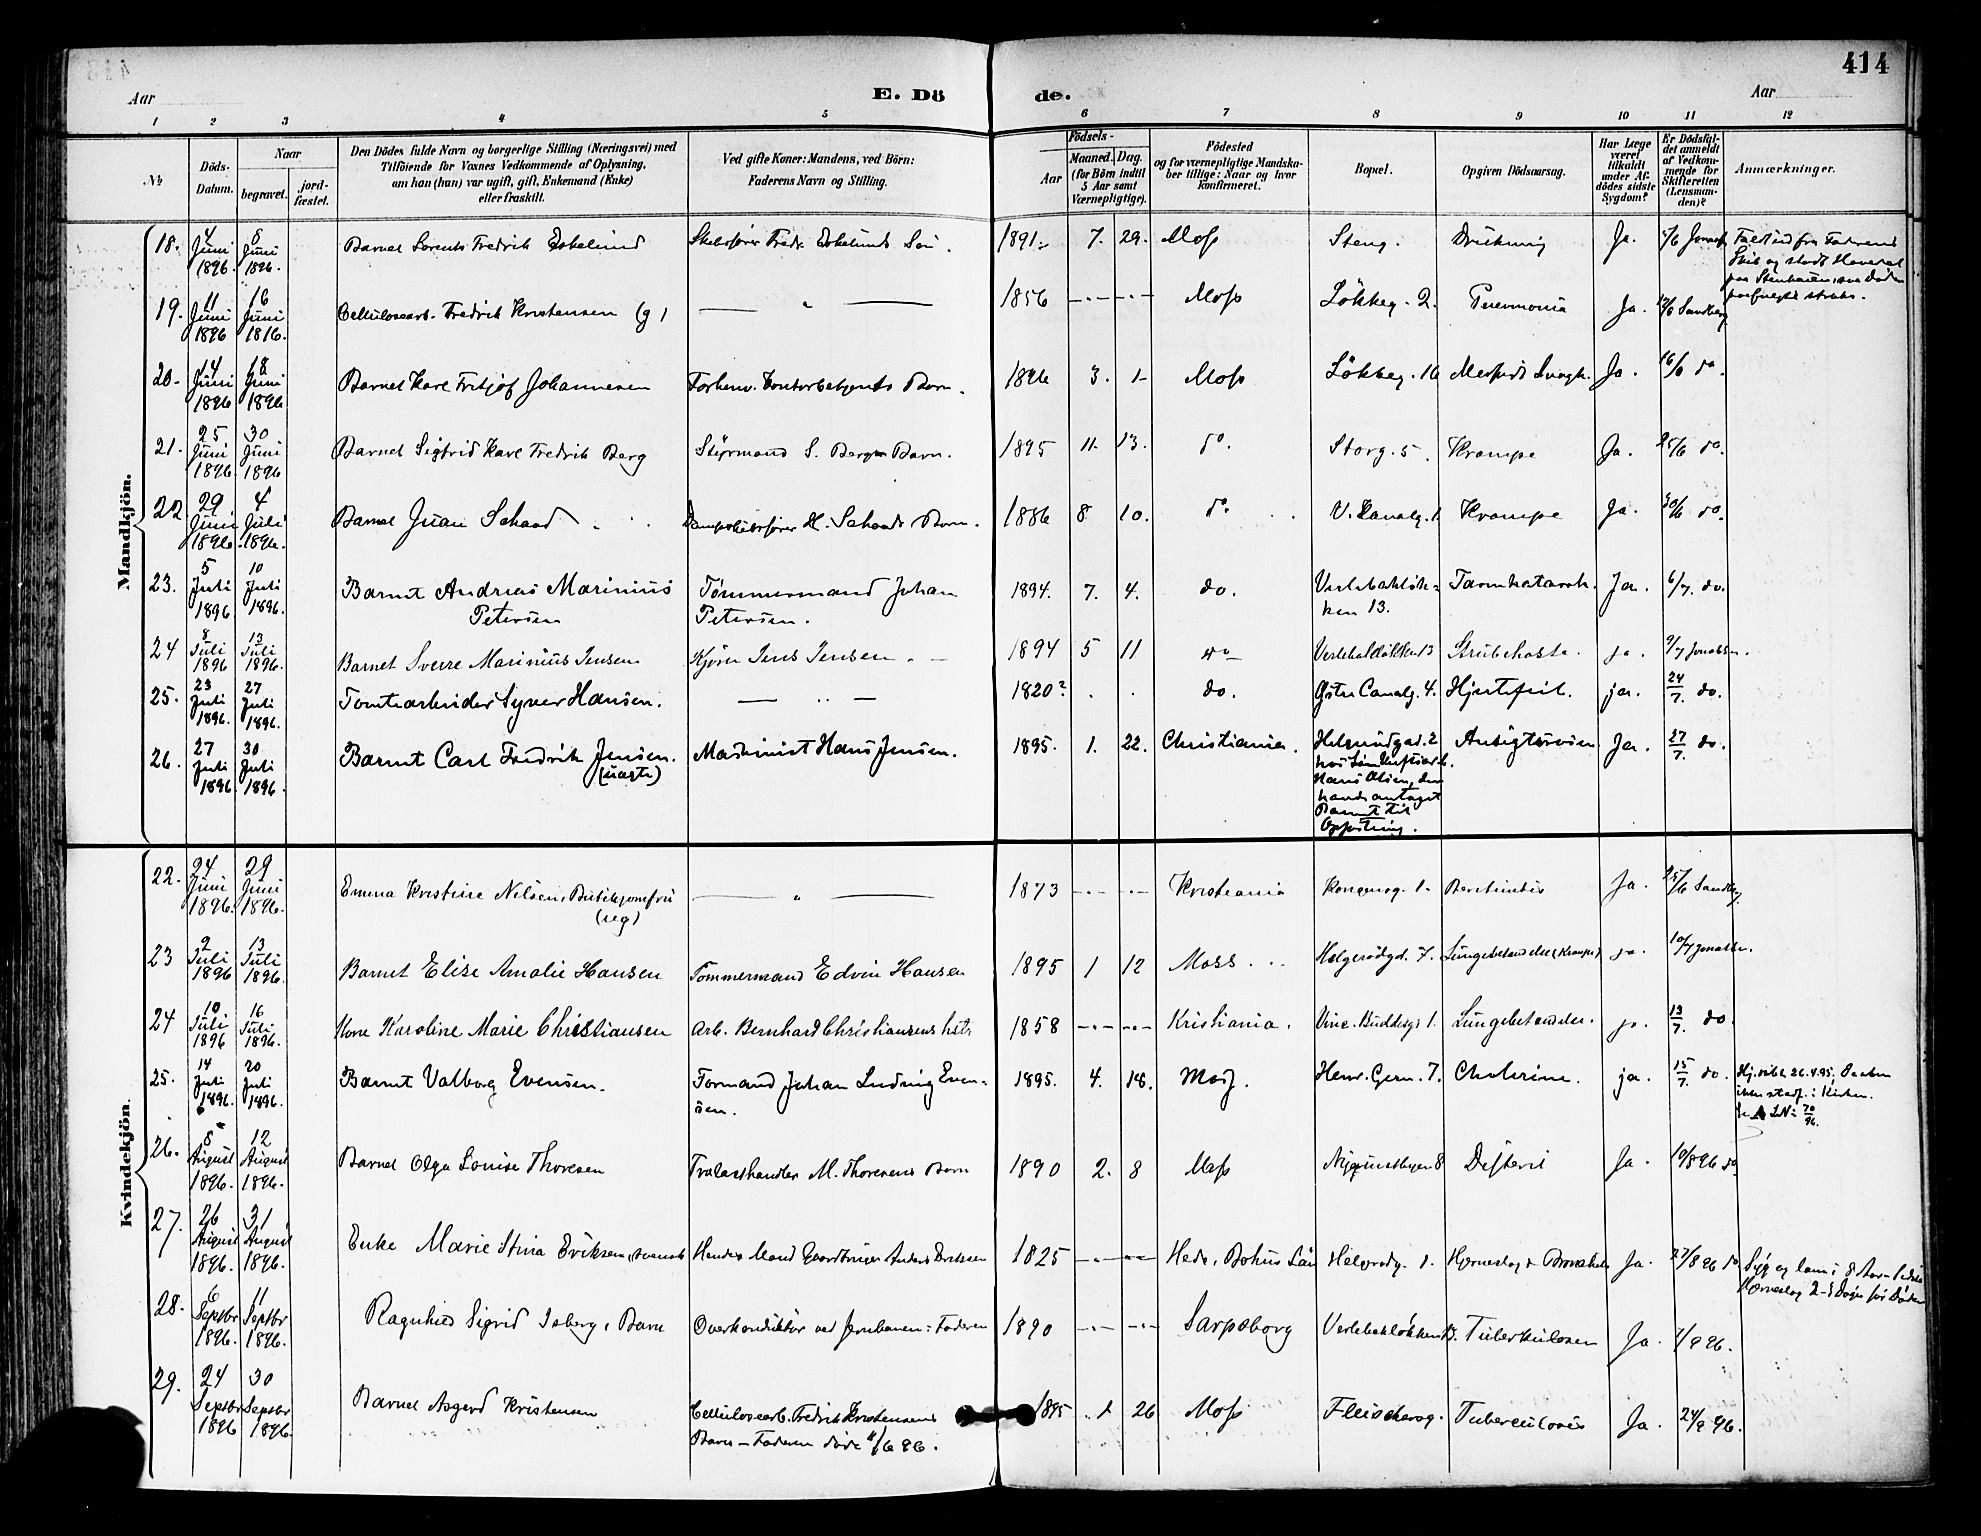 414
Aar
E. Dö
de.
Aar
1 2 3 4 5 6 7 8 9 10 11 12
No
Döds-Datum.
Naar
begravet.
jord-fæstet.
Den Dödes fulde Navn og borgerlige Stilling (Næringsvei) med
Tilföiende for Voxnes Vedkommende af Oplysning,
om han (hun) var ugift, gift, Enkemand (Enke)
eller fraskilt.
Ved gifte Koner: Mandens, ved Börn:
Faderens Navn og Stilling.
Födsels-
Aar
Maaned. Dag.
(for Börn indtil
5 Aar samt
Værnepligtige).
Födested
og for værnepligtige Mandska-
ber tillige: Naar og hvor
konfirmeret.
Bopæl.
Opgiven Dödsaarsag.
Har Læge
været
tilkaldt
under Af-
dödes sidste
Sygdom?
Er Dödsfal-
det anmeldt
af Vedkom-
mende for
Skifteretten
(Lensman-
den)?
Anmærkninger.
Mandkjön.
18. 4 Juni 1896. 8 Juni 1896. Barnet Lorents Fredrik Eskelund Skibsfører Fredr. Eskelunds Søn. 1891. 7. 29. Moss Steng. Drukning Ja. 5/6
19. 11 Juni 1896 16 Juni 1816. Cellulosearb. Fredrik Kristensen (g) — " — 1856 Moss Løkkeg. 2. Pneumonia Ja. 12/6 Sandberg
20. 14 Juni 1896 18 Juni 1896 Barnet Karl Fritjof Johannesen Forhenv. Kontorbetjents Barn. 1896 3. 1. Moss Løkkeg. 16 Medfødt Svagh. Ja. 16/6 do.
21. 25 Juni 1896 30 Juni 1896 Barnet Sigfrid Karl Fredrik Berg Styrmand S. Bergs Barn. 1895 11. 13. do. Storg. 5. Krampe Ja. 25/6 do.
22 29 Juni 1896 4 Juli 1896. Barnet Juan Schaad Dampskibsfører H. Schaads Barn. 1886 8 10. do. V. Kanalg. 1. Krampe Ja. 30/6 do.
23. 5 Juli 1896 10 Juli 1896. Barnet Andreas Marinius Petersen Tømmermand Johan Petersen. 1894. 7. 4. do. Verlebakløkken 13. Tarmkatarrh. Ja. 6/7. do.
24 8 Juli 1896 13 Juli 1896. Barnet Sverre Marinius Jensen Kjører Jens Jensen 1894 5 11 do Verlebakløkken 13 Strubehoste. ja. 9/7 Jonassen.
25. 23 Juli 1896. 27 Juli 1896. Tomtearbeider Syver Hansen. — " — 1820? do. Østre Canalg. 4. Hjertefeil. ja. 24/7. do.
26. 27 Juli 1896. 30 Juli 1896. Barnet Carl Fredrik Jensen. (uægte) Maskinist Hans Jensen. 1895. 1. 22. Christiania. 2 hos Hans Olsen, der havde antaget Barnet til Opfostring. Ansigtsrosen Ja. 27/7. do.
Kvindekjön.
22. 24 Juni 1896. 29 Juni 1896. Emma Kristine Nilsen, Butikjomfru (ug) — " — 1873 Kristiania Kongensg. 1. Ja. 25/6 Sandberg.
23 9 Juli 1896 13 Juli 1896. Barnet Elise Amalie Hansen Tømmermand Edvin Hansen 1895 1 12 Moss Helgerødgd. 7. Lungebetændelse (Krampe) ja. 10/7 Jonassen.
24 10 Juli 1896 16 Juli 1896. Kone Karoline Marie Christiansen Arb. Bernhard Christiansens hstr 1858 Kristiania. Vinc. Buddesgd 1. Lungebetændelse. ja. 13/7. do.
25. 14 Juli 1896. 20 Juli 1896. Barnet Valborg Evensen. Formand Johan Ludvig Evensen. 1895. 4. 18. Moss. Henr. Gern. 7. Cholerine. ja. 15/7. do. Hj.døbt 26.4.95. Daaben ikke stadf. i Kirken.
26. 8 August 1896. 12 August 1896. Barnet Olga Louise Thoresen Trælasthandler M. Thoresens Barn 1890 2. 8 Moss Difterit Ja. 10/8 96 do.
27. 26 August 1896. 31 August 1896. Enke Marie Stina Eriksen, svensk Hendes Mand Gaardbruger Anders Eriksen 1825 Hede, Bohus Län Helgerødg. 1. Hjerneslag & Ja. 27/8 96 do Syg og lam i 8 Aar – Hjerneslag 2–3 Døgn før Døden
28. 6 Septbr 1896. 11 Septbr 1896. Ragnhild Sigrid Isberg, Barn Overkonduktør ved Jernbanen: Faderen 1890 Sarpsborg Verlebakløkken 13. Tuberkulosen Ja. 7/9 96.
29. 24 Septbr 1896 30 Septbr 1896. Barnet Asgerd Kristensen Cellulosearb. Fredrik Kristensens Barn – Faderen døde 11/6 96. 1895 1 26 Moss Fleischersg. Tuberculosis Ja. 24/9 96.